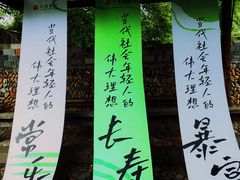 当代社会年轻人的
伟大理想
常乐
当代社会年轻人的
伟大理想
长寿
当代社会年轻人的
伟大理想
暴富